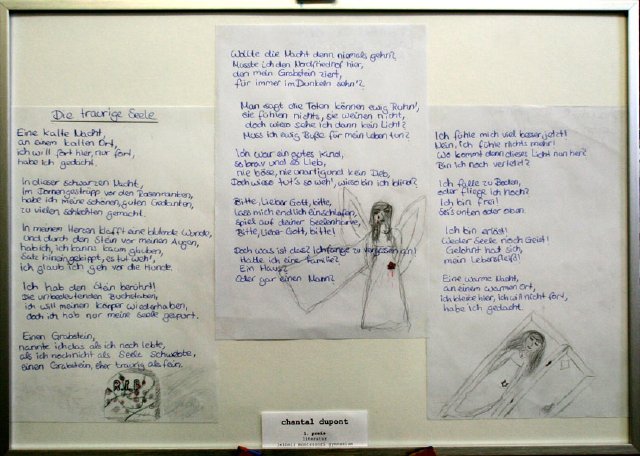 Die traurige Seele
Eine kalte Nacht,
an einem kalten Ort,
ich will fort hier, nur fort,
habe ich gedacht.
In dieser schwarzen Nacht,
im Dornengestrüpp vor den Rosenranken,
habe ich meine schönen, guten Gedanken,
zu vielen schlechten gemacht.
In meinem Herzen klafft eine blutende Wunde,
und durch den Stein vor meinen Augen,
hab ich, ich kanns kaum glauben,
Salz hineingekippt, es tut weh!,
ich glaub ich geh vor die Hunde.
Ich hab den Stein berührt!
Die unbedeutenden Buchstaben,
ich will meinen Körper wiederhaben,
doch ich hab nur meine Seele gespürt.
Einen Grabstein,
nannte ich das als ich noch lebte,
als ich noch nicht als Seele schwebte,
einen Grabstein, eher traurig als fein.
R.I.P
Wollte die Nacht denn niemals gehn?
Müsste ich den Nordfriedhof hier,
den mein Grabstein ziert,
für immer im Dunkeln sehn'?
Man sagt die Toten können ewig Ruhn',
sie fühlen nichts, sie weinen nicht,
doch wieso sehe ich dann kein Licht?
Muss ich ewig Buße für mein Leben tun?
Ich war ein gutes Kind,
so brav und so lieb,
nie böse, nie unartig und kein Dieb,
Doch wieso tut's so weh', wieso bin ich blind?
Bitte, Lieber Gott, bitte,
lass mich endlich einschlafen,
spiel auf deiner Seelenharfe,
Bitte, Lieber Gott, bitte!
Doch was ist das? Ich fange zu vergessen an!
Hatte ich eine Familie?
Ein Haus?
Oder gar einen Mann?
Ich fühle mich viel besser jetzt!
Nein, Ich fühle nichts mehr!
Wo kommt denn dieses Licht nun her?
Bin ich noch verletzt?
Ich falle zu Boden,
oder fliege ich hoch?
Ich bin frei!
Seis unten oder oben.
Ich bin erlöst!
Weder Seele noch Geist!
Gelohnt hat sich,
mein Lebensfleiß!
Eine warme Nacht,
an einem warmen Ort,
ich bleibe hier, ich will nicht fort,
habe ich gedacht.
chantal dupont
1. preis
literatur